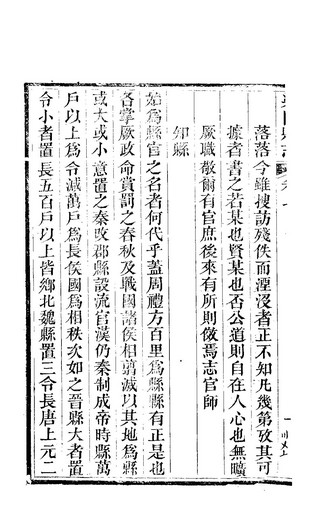 落落今雖搜訪殘佚而湮沒者正不知凡幾第攷其可
據者書之若某也賢某也否公道則自在人心也無曠
厥職敬爾有官庶後來有所則傚焉志官師
知縣
始為縣官之名者何代乎蓋周禮方百里為縣縣有正是也
各掌厥政命賞罰之春秋及戰國諸侯相翦滅以其地為縣
或大或小意置之秦改郡縣設流官漢仍秦制成帝時縣萬
戶以上為令減萬戶為長侯國為相秩次如之晉縣大者置
令小者置長五百戶以上皆鄉北魏縣置三令長唐上元二